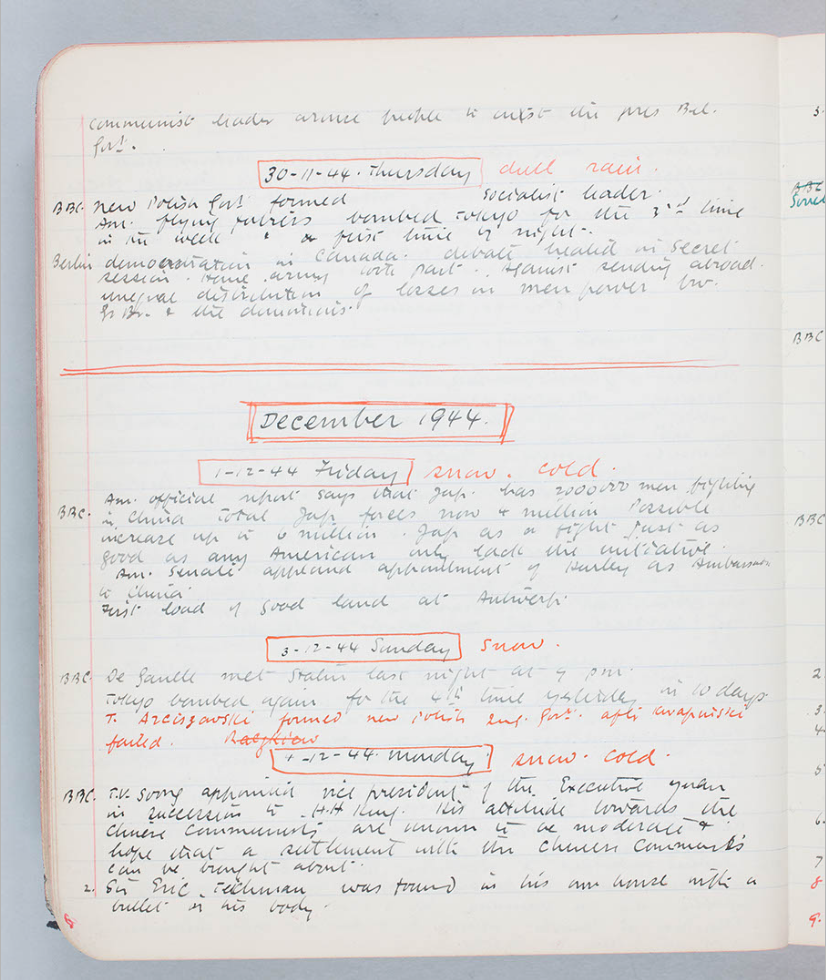 communist leader arouse people to resist the pres Bel.
Govt.
30-11-44. Thursday dull rain.
BBC. New Polish Govt formed Socialist leader.
Am. flying fortress bombed Tokyo for the 3rd time
in the week & first time of night.
Berlin demonstration in Canada. debate heated in Secret
session. Home army took part. Against sending abroad.
unequal distribution of losses in men power bw.
Gr Br. & the dominions.
December 1944.
1-12-44 Friday snow. cold.
Am. official report says that Jap. has 2000000 men fighting
BBC. in China total Jap forces now 4 million Possible
increase up to 6 million. Jap as a fight just as
good as any American only lack the initiative.
Am. Senate appointment of Hurley as Ambassador
to China
First load of good land at Antwerp.
3-12-44 Sunday snow.
BBC. De Gaulle met Stalin last night at 9 pm.
Tokyo bombed again for the 4th time yesterday in 10 days
T. Arciszewski formed new Polish Govt. after Kwapinski
failed.
4-12-44. Monday snow. cold.
BBC. T.V. Soong appointed vice president of the Executive yuan
in succession to H.H Kung. His attitude towards the
Chinese Communists are known to be moderate &
hope that a settlement with the Chinese Communists
can be brought about.
2. Sir Eric Teichman was found in his own house with a
bullet in his body.
8
3.
BBC
Soviet
BBC
BBC
2.
3.
4.
5
6.
7
8
9.